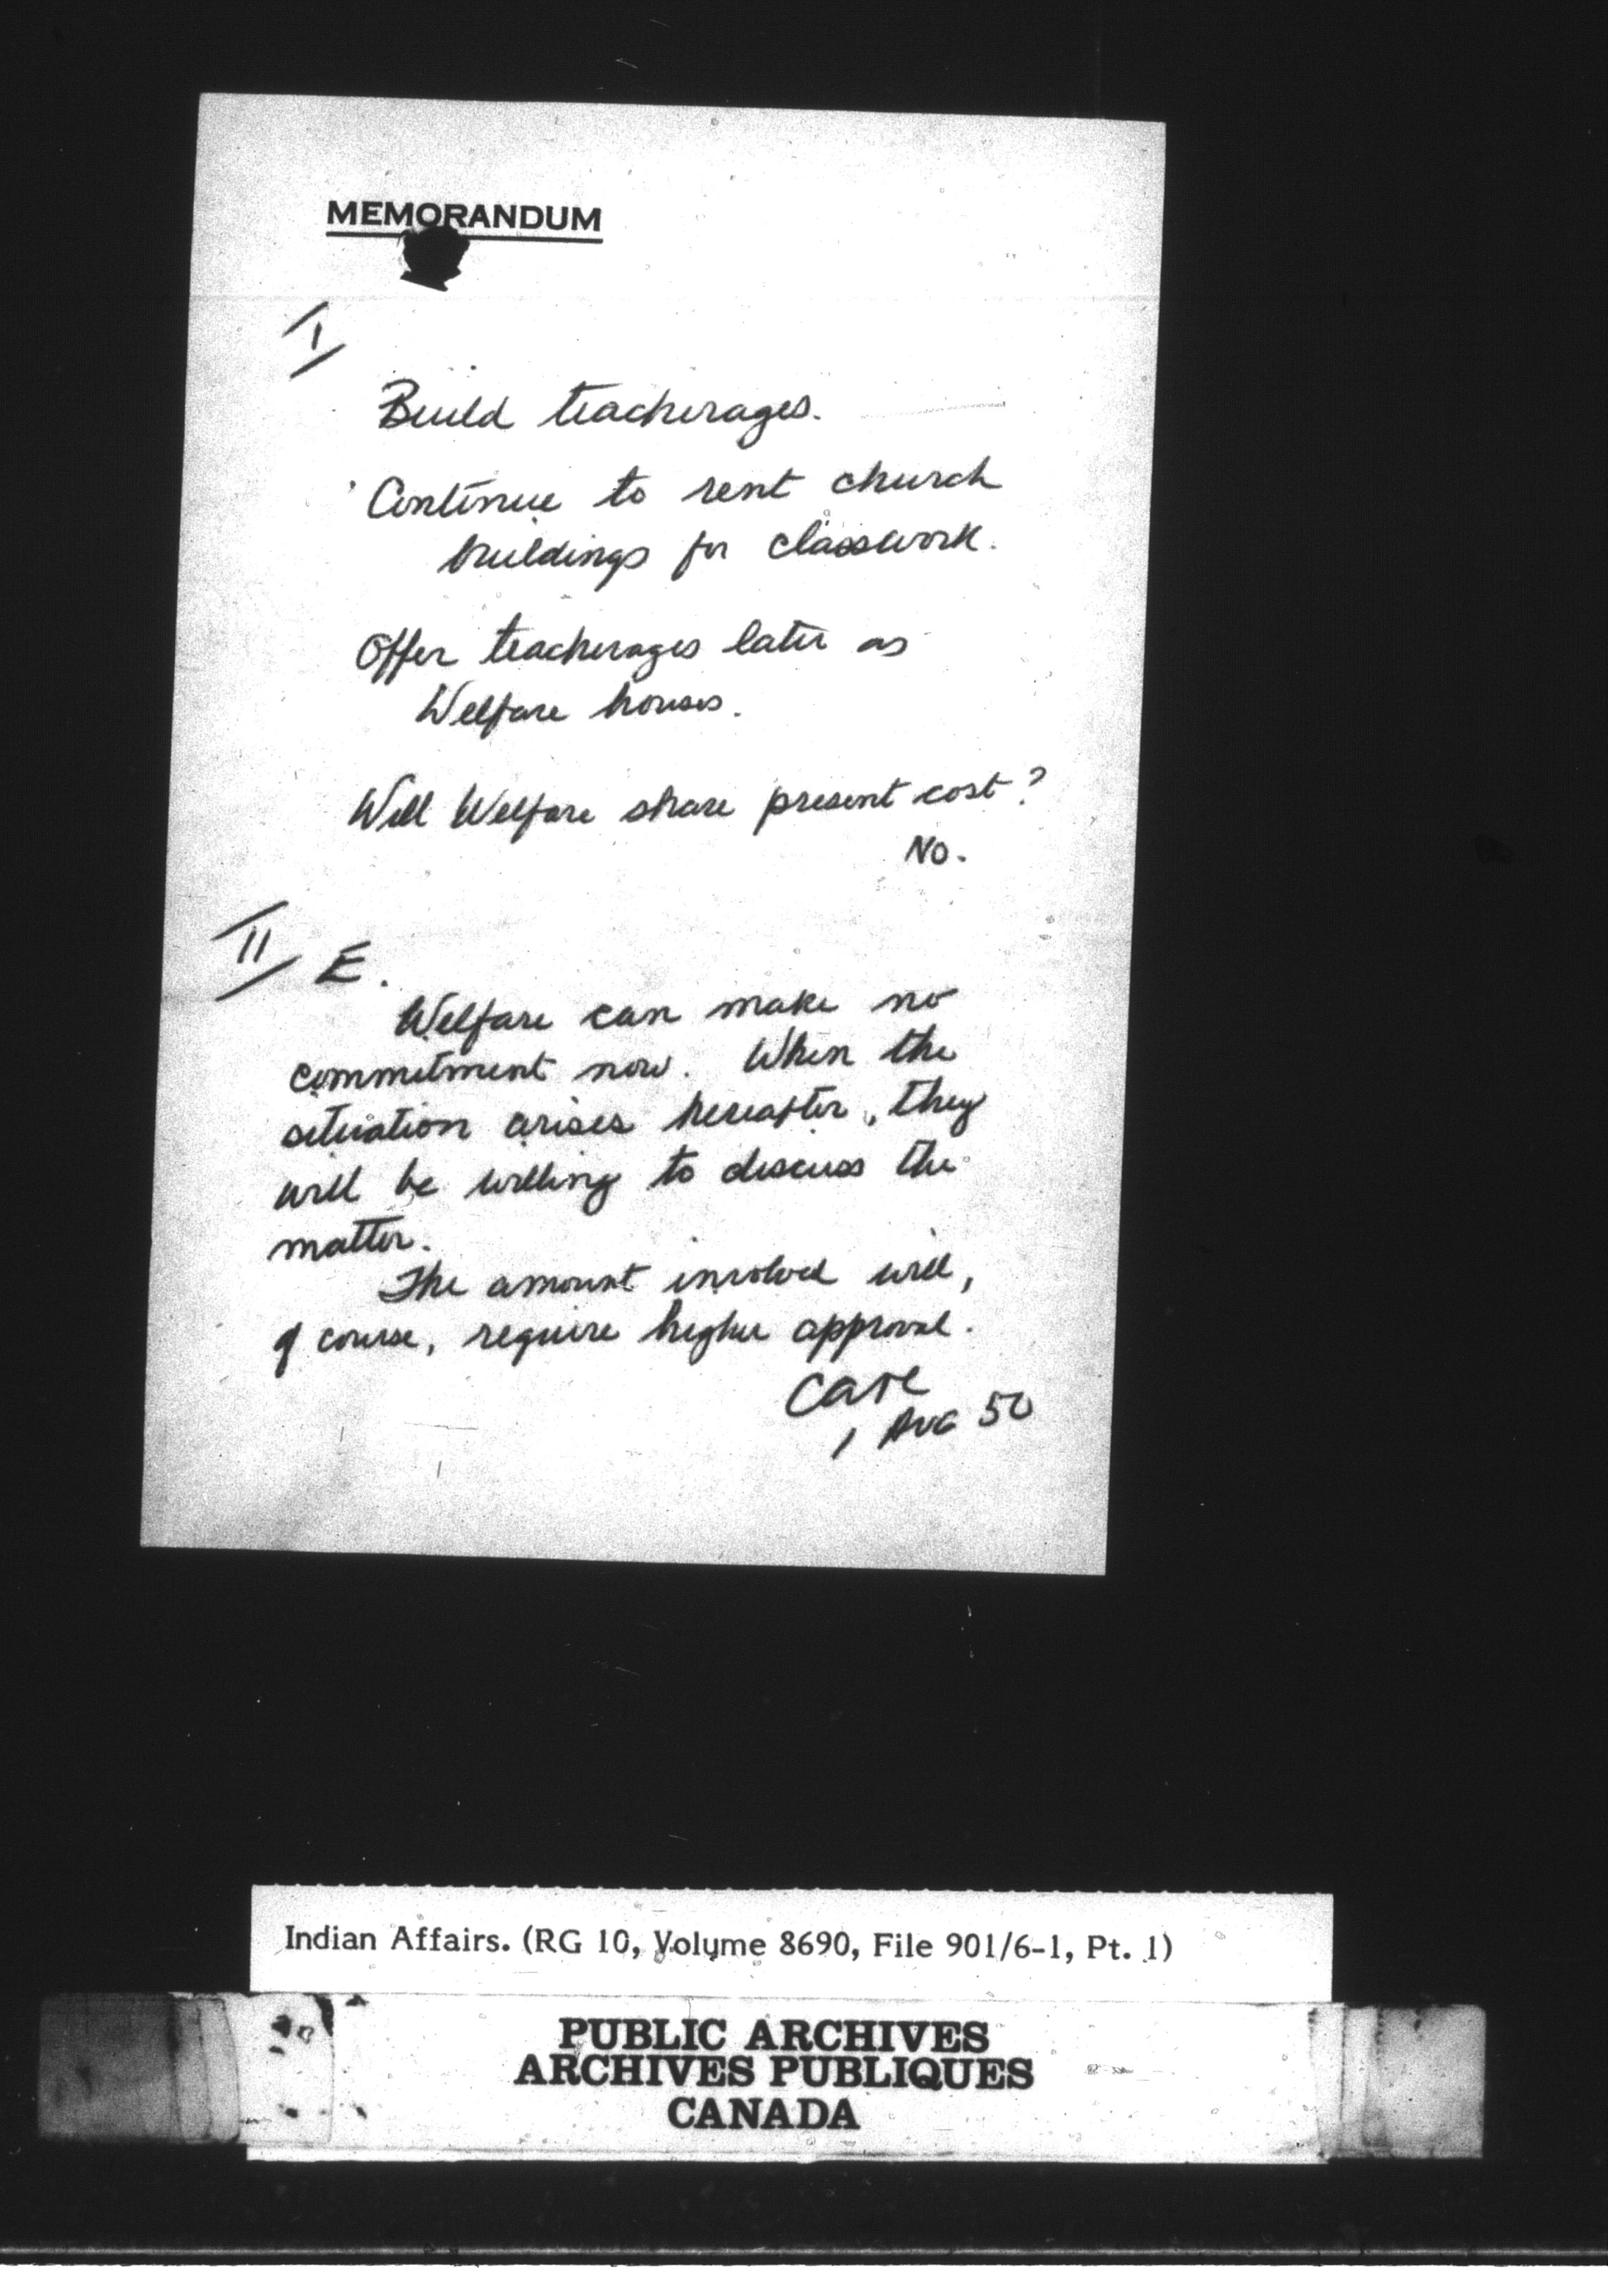 MEMORANDUM
I
Build teacherages.
Continue to rent church
buildings for classwork.
Offer teacherages later as
Welfare houses.
Will Welfare share present cost?
No.
II E.
Welfare can make no
commitment now. When the
situation arises hereafter, they
will be willing to discuss the
matter.
The amount involved will,
of course, require higher approval.
1 AUG 50
Indian Affairs. (RG 10, Volume 8690, File 901/6-1, Pt. 1)
PUBLIC ARCHIVES
ARCHIVES PUBLIQUES
CANADA